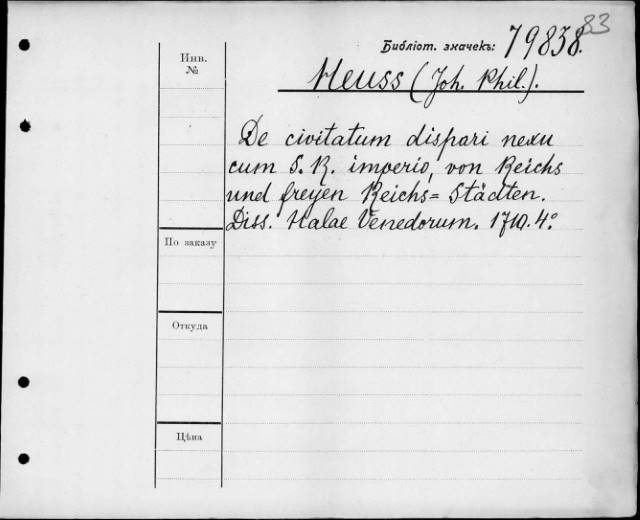 83
Библіот. значекъ: 79838.
Инв.
№
Heuss (Joh. Phil.).
De civitatum dispari nexu
cum S. R. imperio, von Reichs
und freyen Reichs= Städten.
Diss. Halae Venedorum. 1710. 4.°
По заказу
Откуда
Цѣна